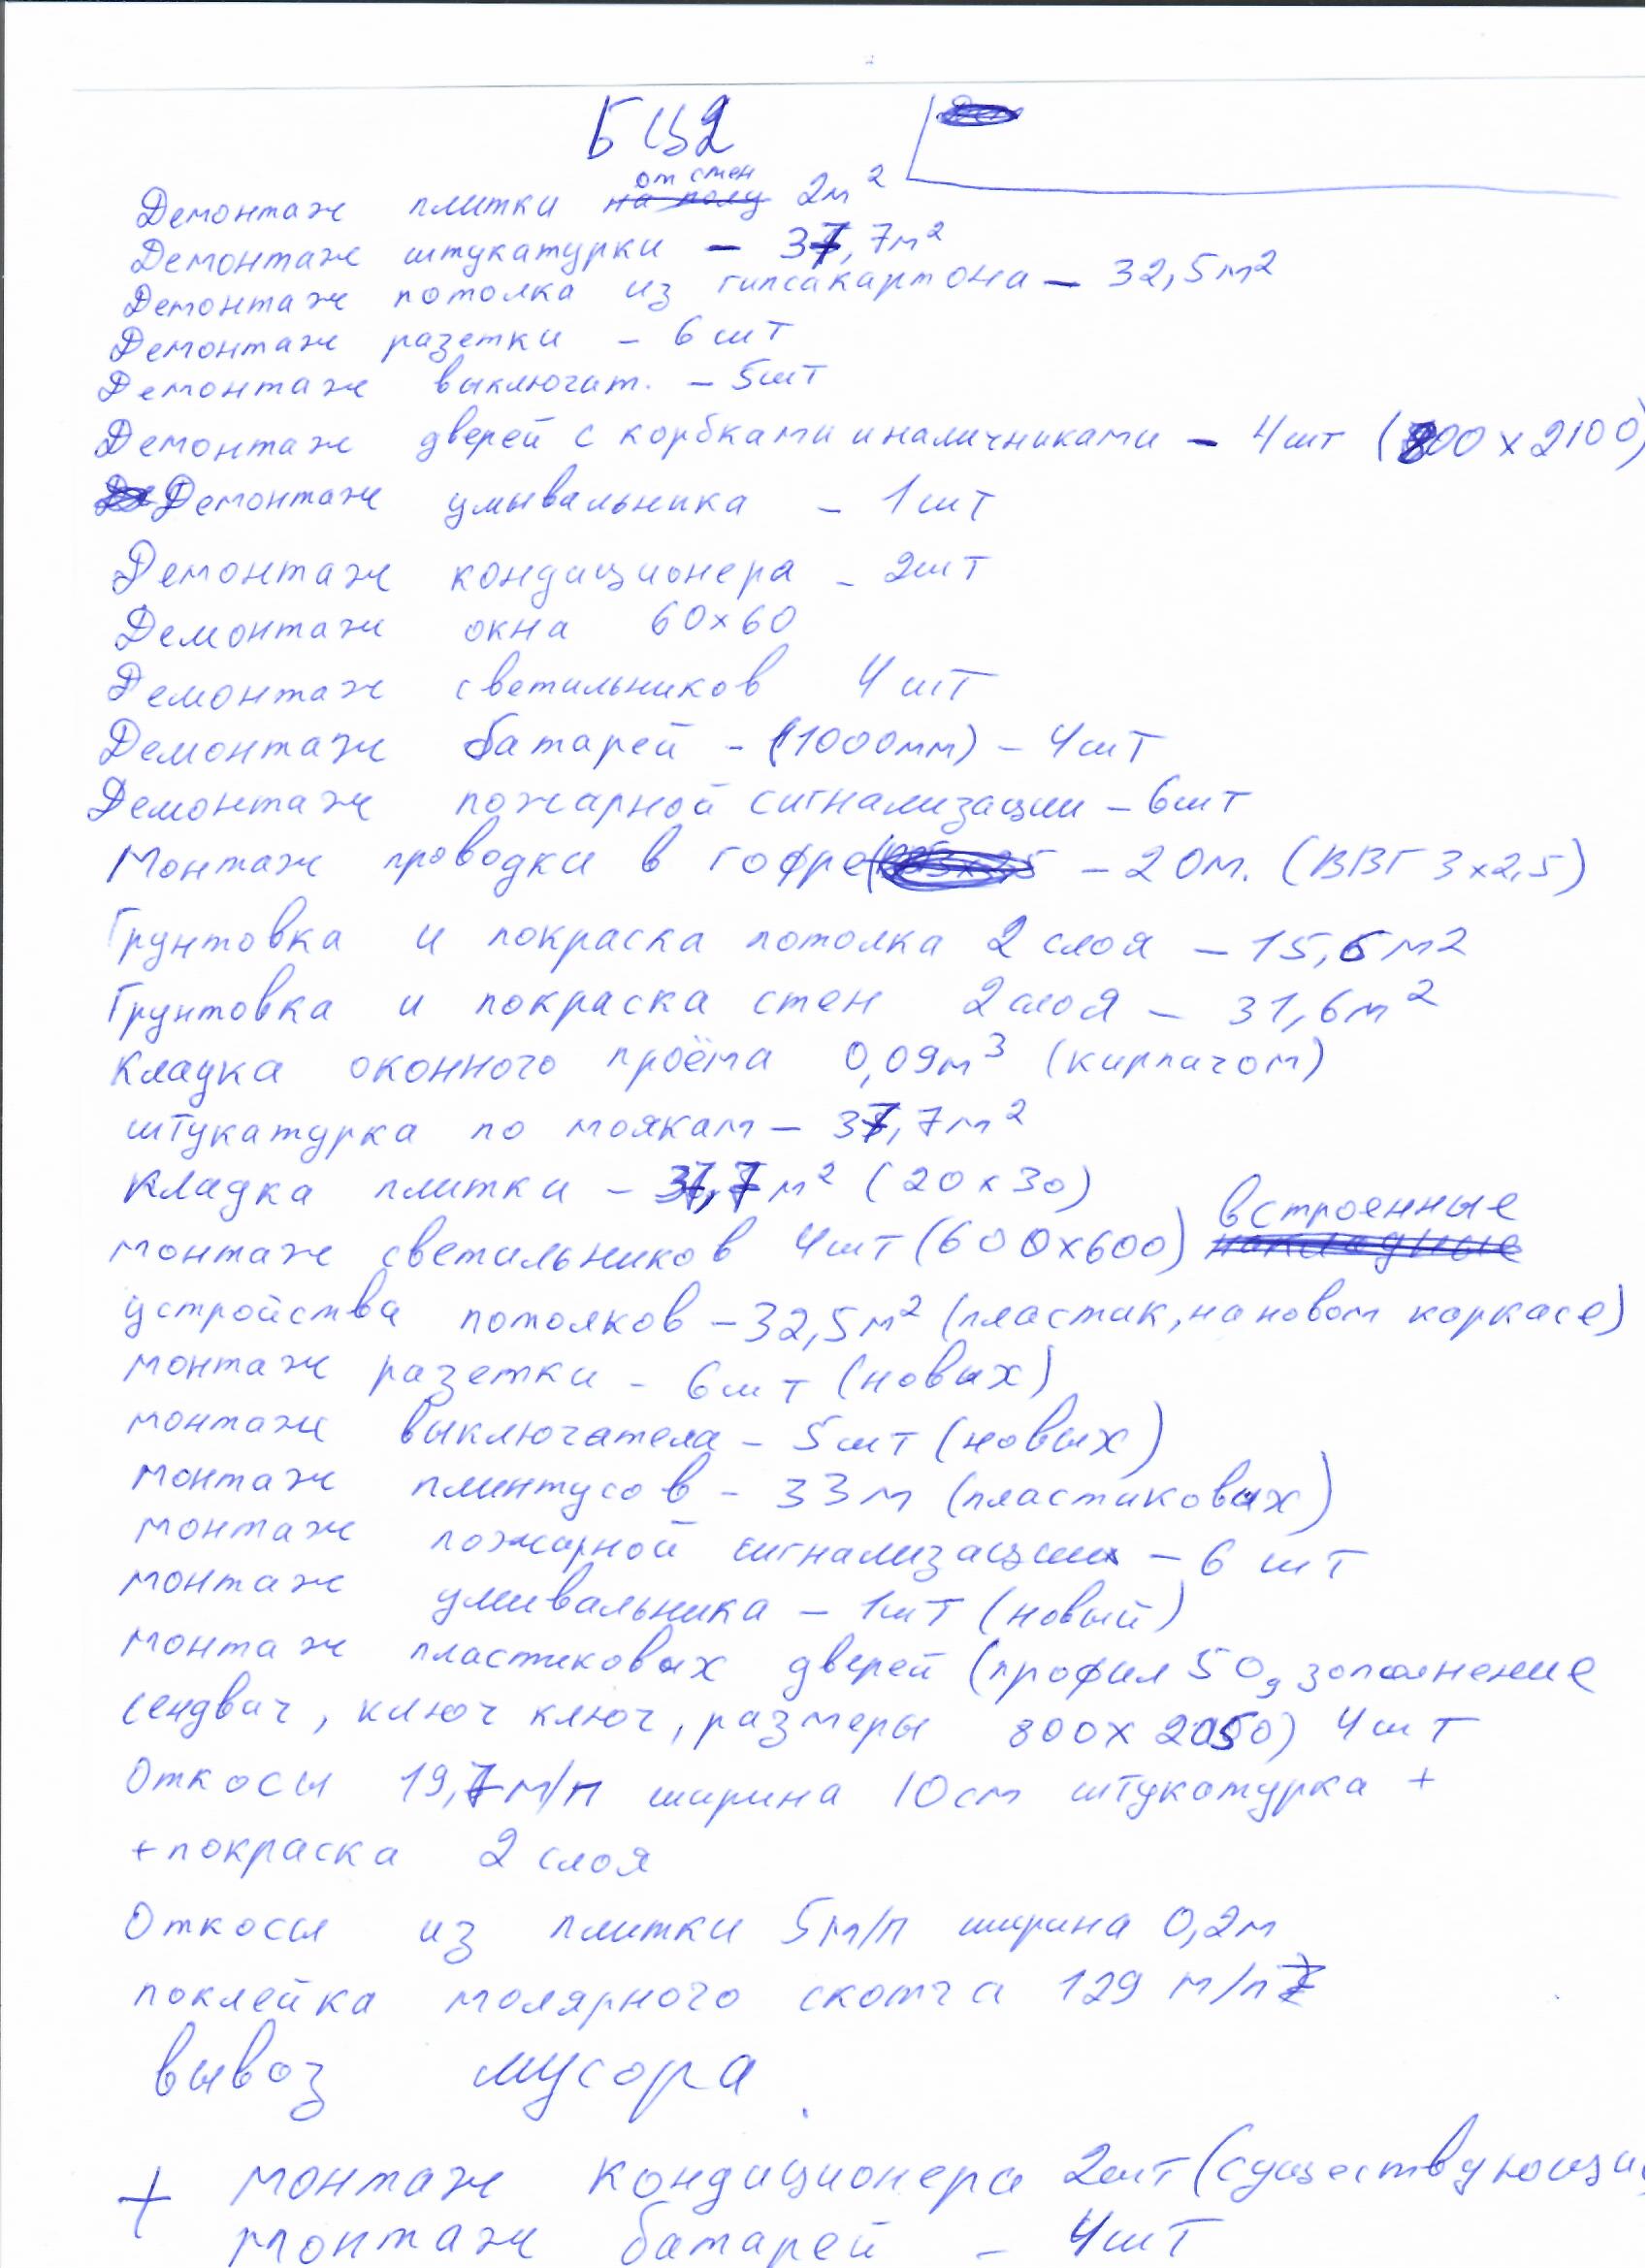 БЦ2
Демонтаж плитки от стен 2м²
Демонтаж штукатурки – 37,7м²
Демонтаж потолка из гипсакартона – 32,5м²
Демонтаж разетки – 6шт
Демонтаж выключат. – 5шт
Демонтаж дверей с корбками и наличниками – 4шт (800х2100)
Демонтаж умывальника – 1шт
Демонтаж кондиционера – 2шт
Демонтаж окна 60х60
Демонтаж светильников 4шт
Демонтаж батарей – (1000мм) – 4шт
Демонтаж пожарной сигнализации – 6шт
Монтаж проводки в гофре – 20м. (ВВГ 3х2,5)
Грунтовка и покраска потолка 2 слоя – 15,6м2
Грунтовка и покраска стен 2слоя – 31,6м²
Кладка оконного проёма 0,09м³ (кирпачом)
штукатурка по моякам – 37,7м²
Кладка плитки – 37,7м² (20х30)
встроенные
монтаж светильников 4шт (600х600)
устройства потолков – 32,5м² (пластик, на новом каркасе)
монтаж разетки – 6шт (новых)
монтаж выключателя – 5шт (новых)
монтаж плинтусов – 33м (пластиковых)
монтаж пожарной сигнализации – 6 шт
монтаж умивальника – 1шт (новый)
монтаж пластиковых дверей (профил 50, заполнение
сендвич, ключ ключ, размеры 800х2050) 4шт
Откосы 19,7м/п ширина 10см штукатурка +
+ покраска 2 слоя
Откосы из плитки 5м/п ширина 0,2м
поклейка молярного скотча 129 м/п
вывоз мусора
+ монтаж кондиционера 2шт (существующи
монтаж батарей – 4шт